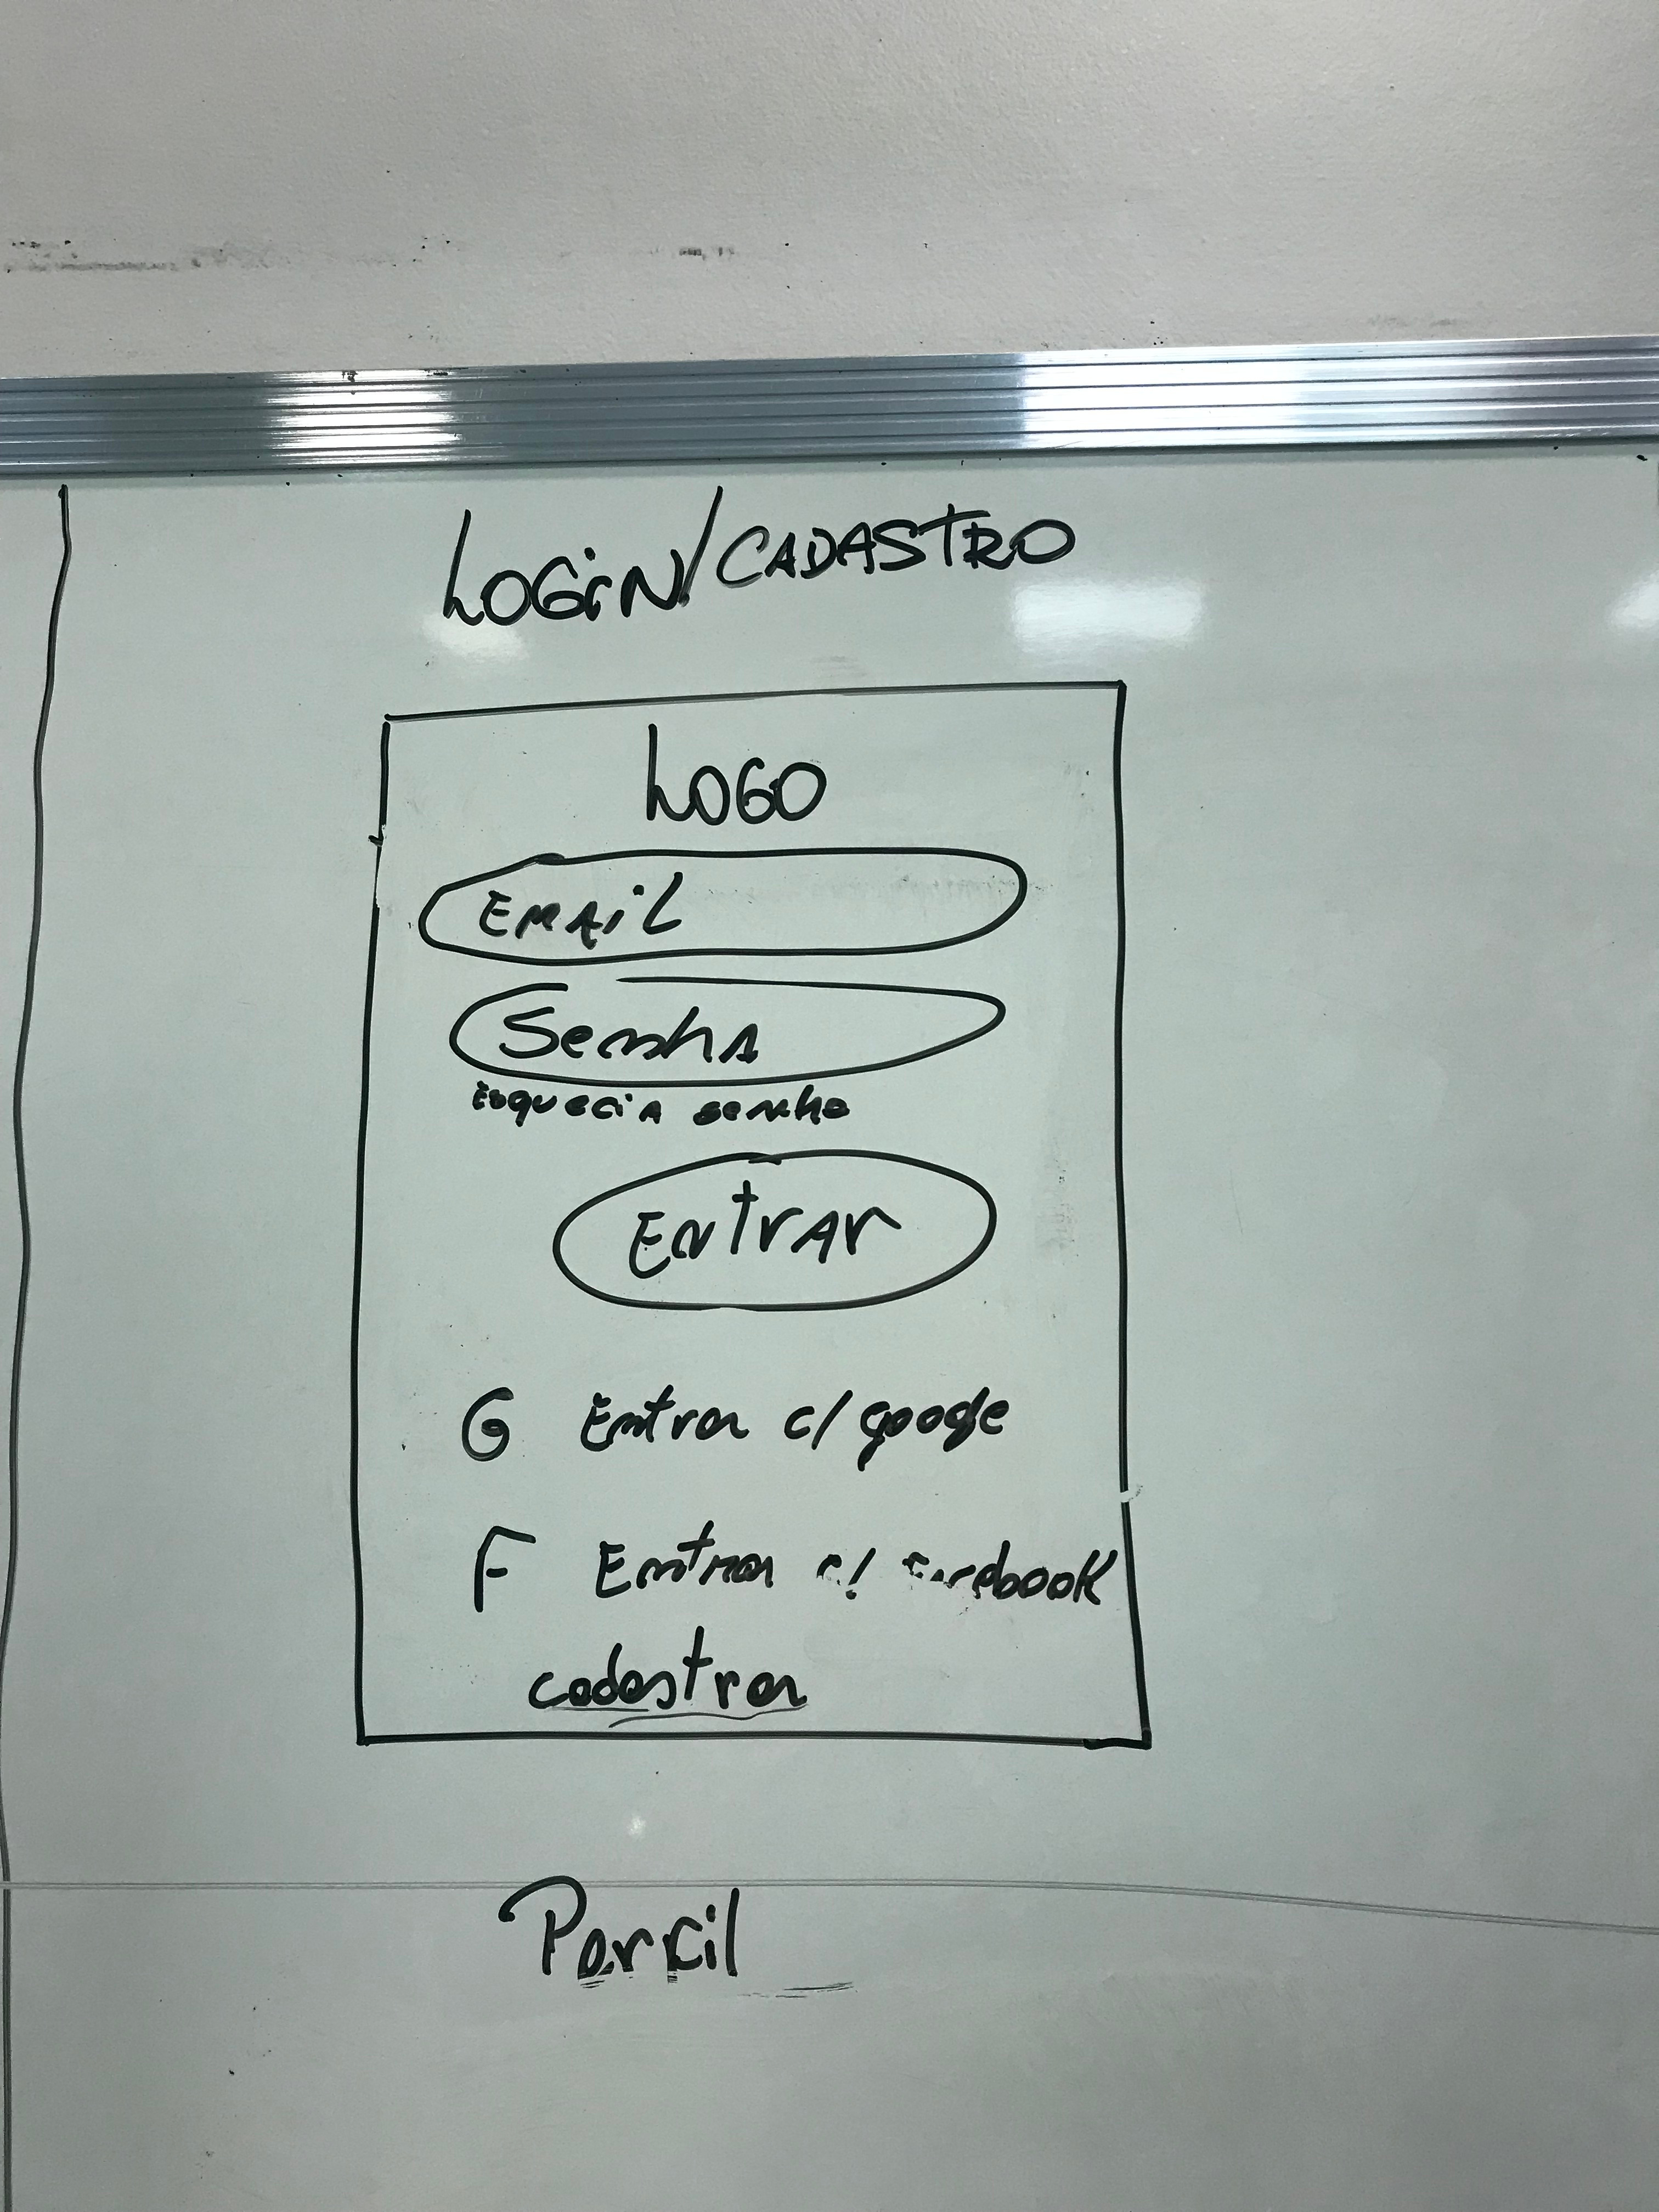 LOGIN/CADASTRO
LOGO
EMAIL
Senha
Esqueci A senha
Entrar
G Entrar c/ google
F Entrar c/ facebook
cadastrar
Perfil